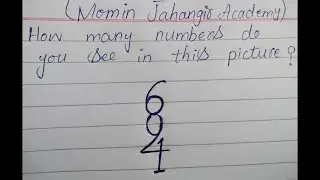 (Momin Jahangir Academy)
How many numbers do
you see in this picture?
6
9
4